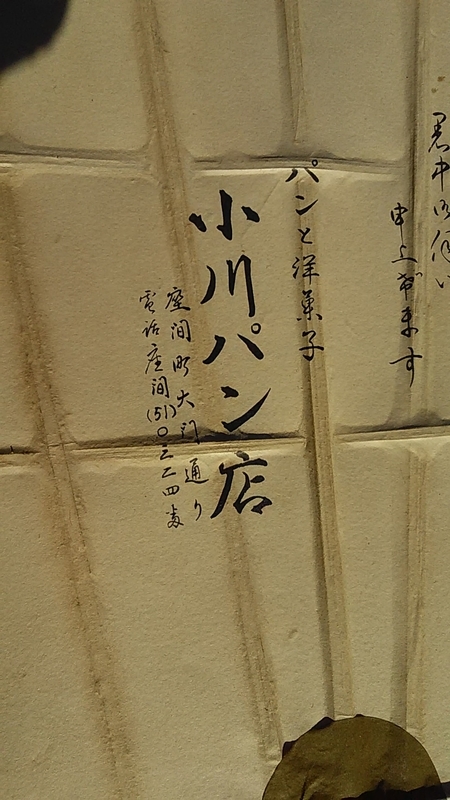 暑中御伺い
申上げます
パンと洋菓子
小川パン店
座間町大門通り
電話座間(51)〇三二四番